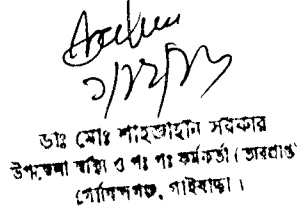 ডাঃ মোঃ শাহজাহান সরকার
উপজেলা স্বাস্থ্য ও পঃ পঃ কর্মকর্তা (ভারপ্রাপ্ত)
গোবিন্দগঞ্জ, গাইবান্ধা।